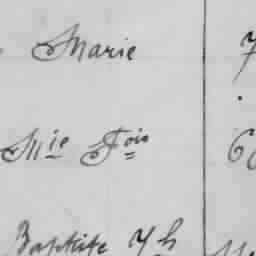 Marie 7
Mie Fois 6
Baptiste